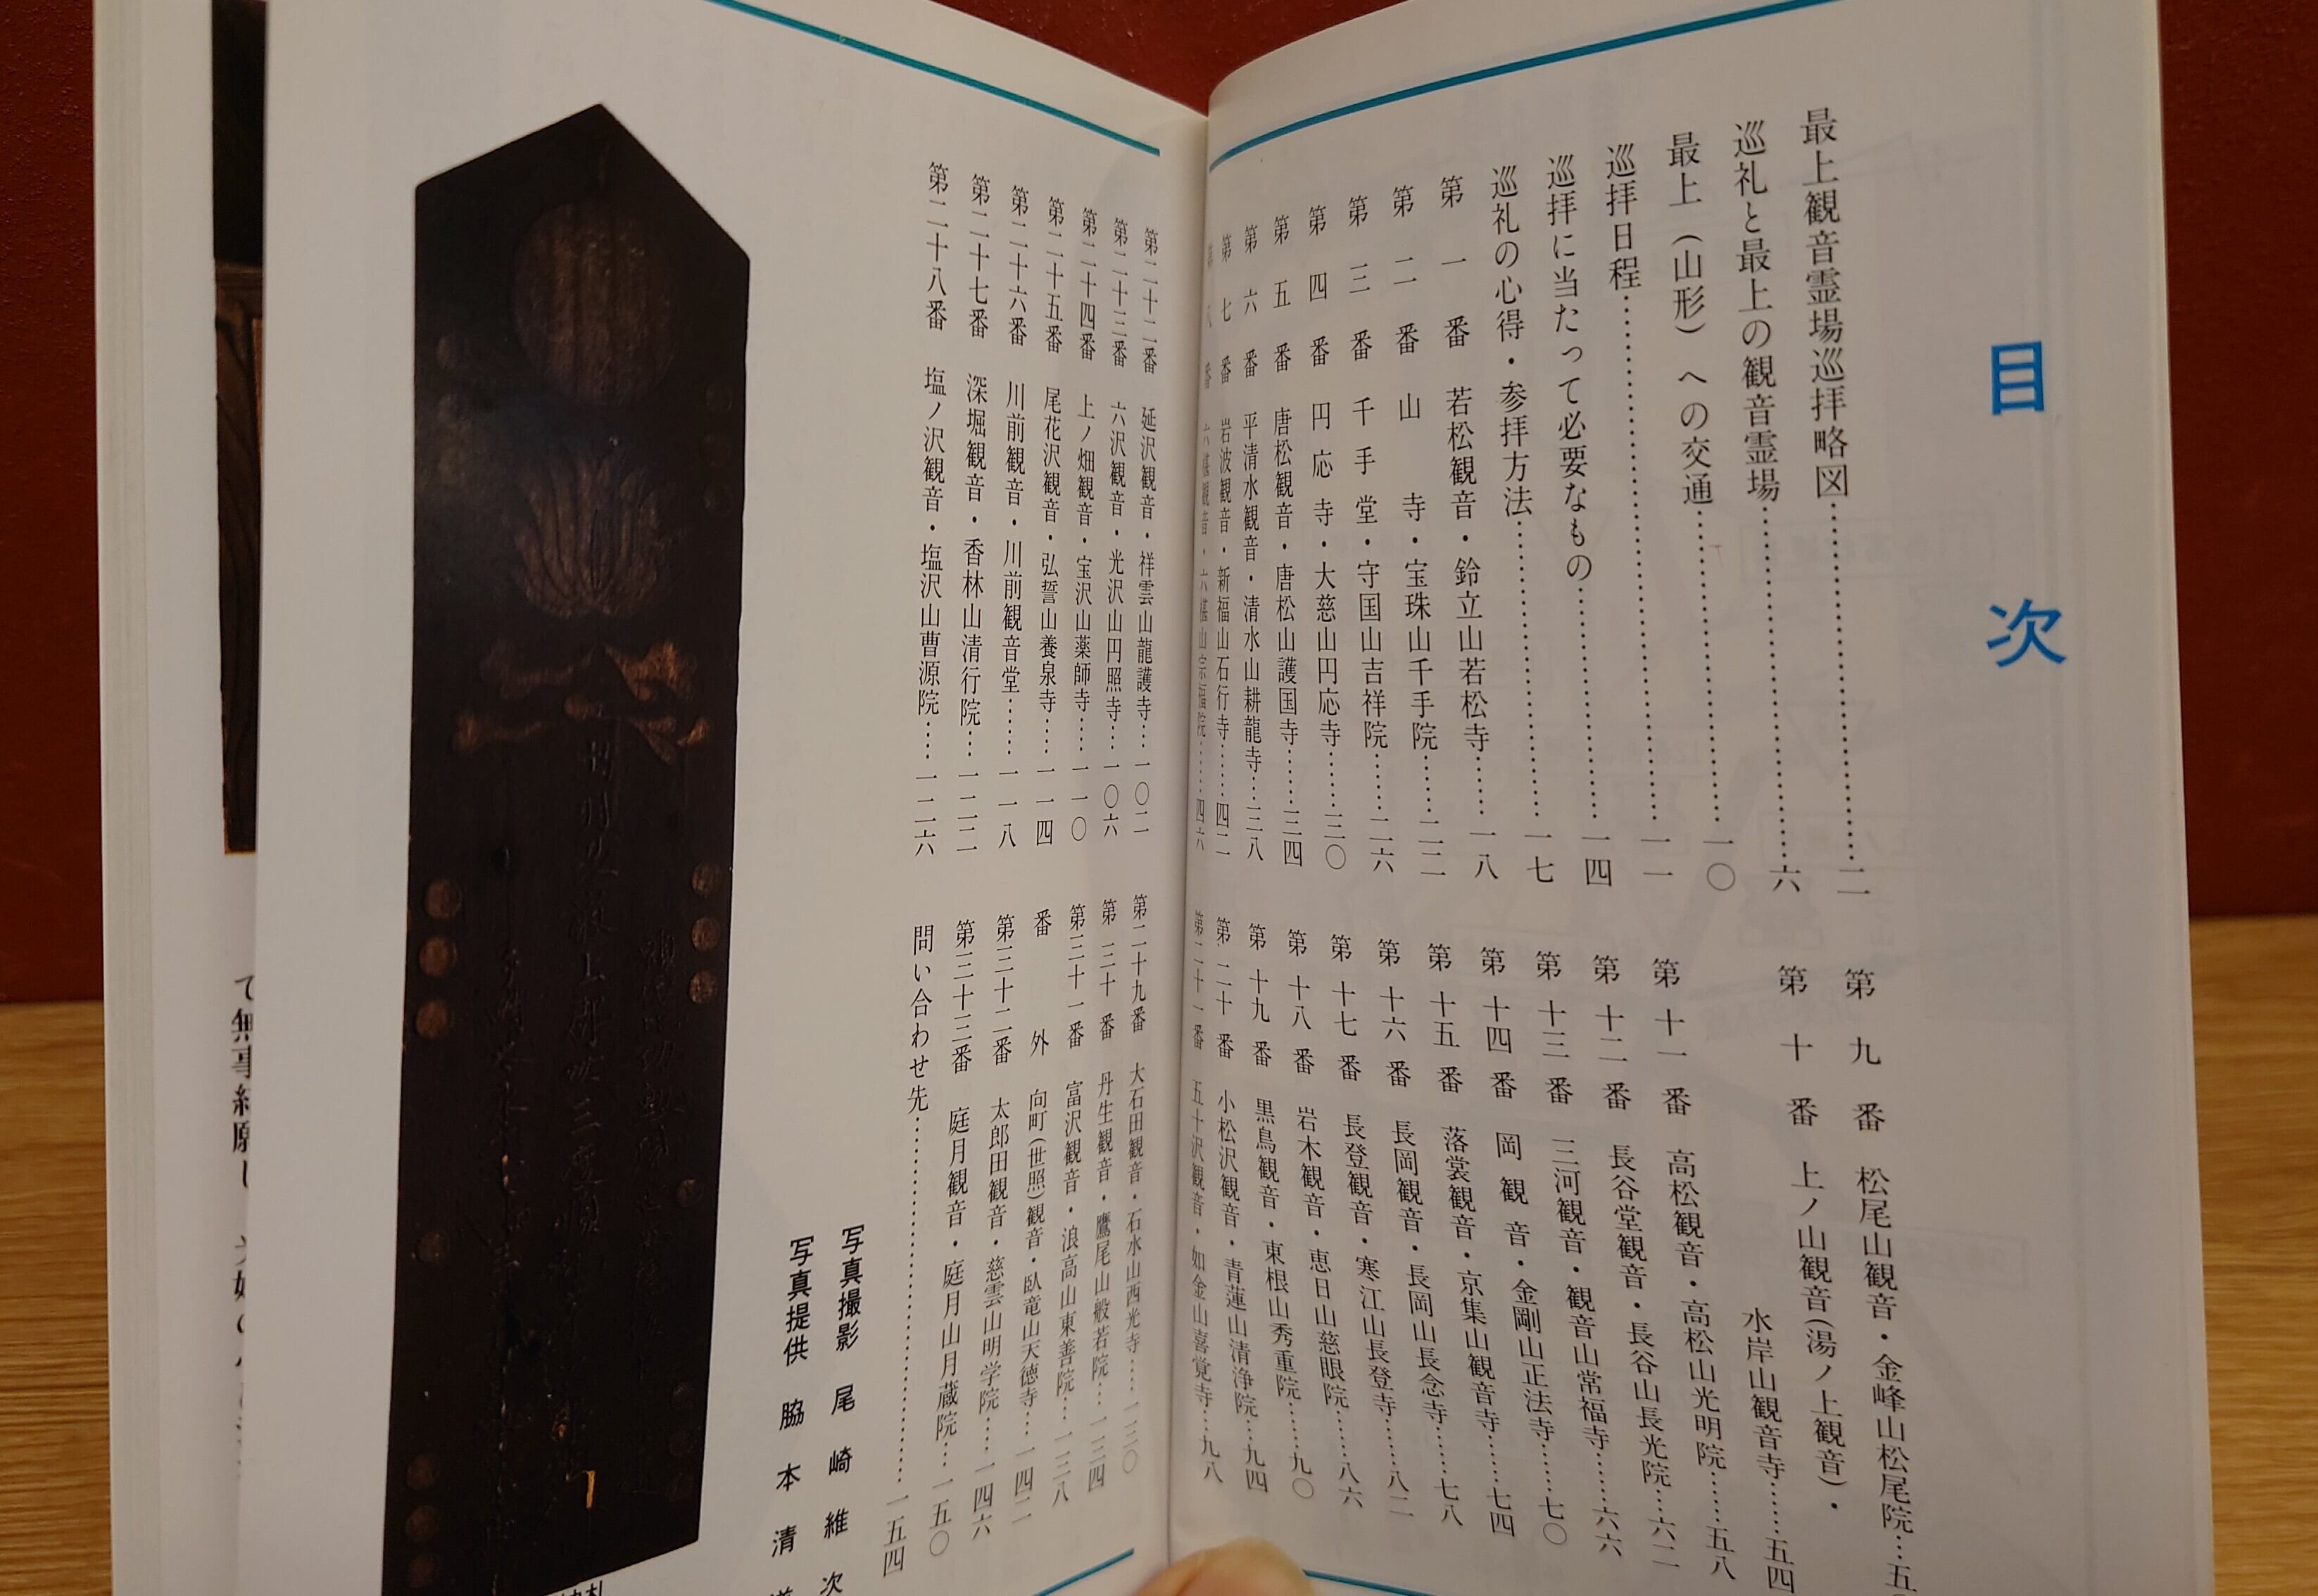 目次
最上観音霊場巡拝略図……二
巡礼と最上の観音霊場……六
最上(山形)への交通……一〇
巡拝日程……一一
巡拝に当たって必要なもの……一四
巡礼の心得・参拝方法……一七
第一番 若松観音・鈴立山若松寺……一八
第二番 山寺・宝珠山千手院……二二
第三番 千手堂・守国山吉祥院……二六
第四番 円応寺・大慈山円応寺……三〇
第五番 唐松観音・唐松山護国寺……三四
第六番 平清水観音・清水山耕龍寺……三八
第七番 岩波観音・新福山石行寺……四二
第八番 六椹観音・六椹山宗福院……四六
第九番 松尾山観音・金峰山松尾院…五
第十番 上ノ山観音(湯ノ上観音)・
水岸山観音寺……五四
第十一番 高松観音・高松山光明院……五八
第十二番 長谷堂観音・長谷山長光院…六二
第十三番 三河観音・観音山常福寺……六六
第十四番 岡観音・金剛山正法寺……七〇
第十五番 落裳観音・京集山観音寺……七四
第十六番 長岡観音・長岡山長念寺……七八
第十七番 長登観音・寒江山長登寺……八二
第十八番 岩木観音・恵日山慈眼院……八六
第十九番 黒鳥観音・東根山秀重院……九〇
第二十番 小松沢観音・青蓮山清浄院…九四
第二十一番 五十沢観音・如金山喜覚寺…九八
第二十二番 延沢観音・祥雲山龍護寺…一〇二
第二十三番 六沢観音・光沢山円照寺…一〇六
第二十四番 上ノ畑観音・宝沢山薬師寺…一一〇
第二十五番 尾花沢観音・弘誓山養泉寺…一一四
第二十六番 川前観音・川前観音堂……一一八
第二十七番 深堀観音・香林山清行院…一二二
第二十八番 塩ノ沢観音・塩沢山曹源院…一二六
第二十九番 大石田観音・石水山西光寺…一三〇
第三十番 丹生観音・鷹尾山般若院…一三四
第三十一番 富沢観音・浪高山東善院…一三八
番外 向町(世照)観音・臥竜山天徳寺…一四二
第三十二番 太郎田観音・慈雲山明学院…一四六
第三十三番 庭月観音・庭月山月蔵院…一五〇
問い合わせ先……一五四
写真撮影 尾崎維次
写真提供 脇本清